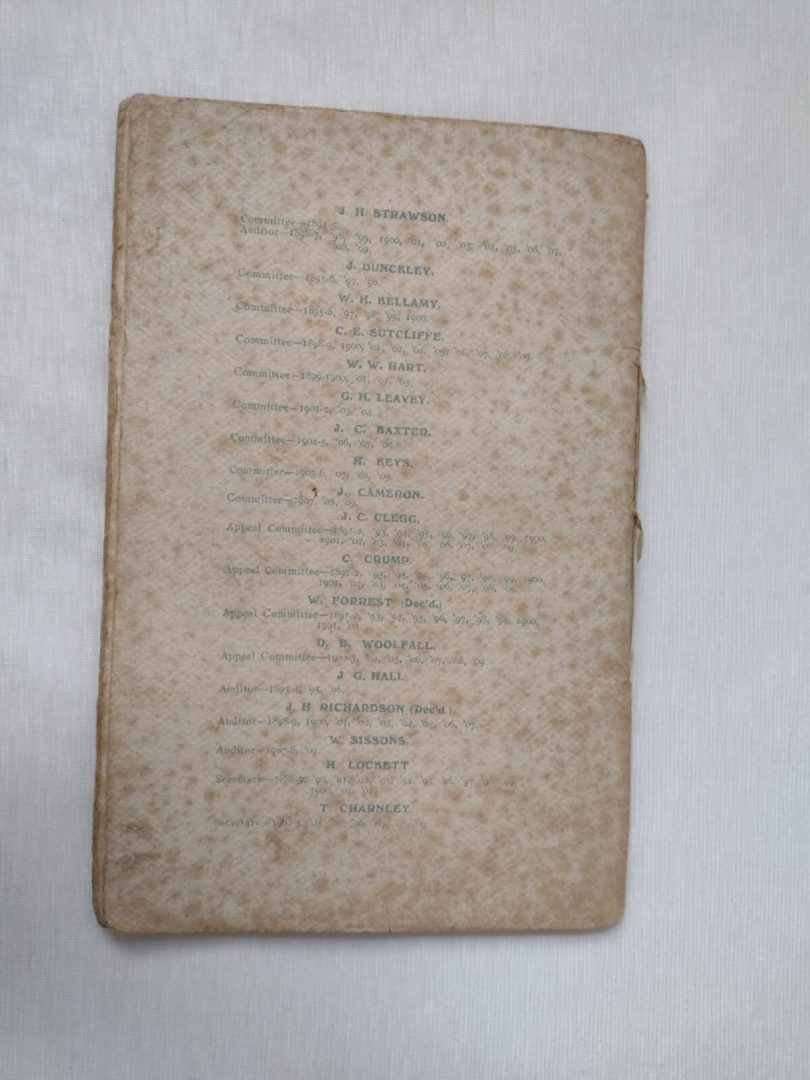 J. H. STRAWSON.
Committee—1894-5.
Auditor—1896-7, '98, '99, 1900, '01, '02, '03, '04, '05, '06, '07,
'08, '09.
J. DUNCKLEY.
Committee—1895-6, '97, '98.
W. H. BELLAMY.
Committee—1895-6, '97, '98, '99, 1900.
C. E. SUTCLIFFE.
Committee—1898-9, 1900, '01, '02, '04, '05, '06, '07, '08, '09.
W. W. HART.
Committee—1899-1900, '01, '02, '03.
G. H. LEAVEY.
Committee—1901-2, '03, '04.
J. C. BAXTER.
Committee—1904-5, '06, '07,
H. KEYS.
Committee—1905-6, '07, '08, '09.
J. CAMERON.
Committee—1907, '08, '09.
J. C. CLEGG.
Appeal Committee—1891-2, '93, '94, '95, '96, '97, '98, '99, 1900,
1901, '02, '03, '04, '05, '06, '07, '08, '09.
C. CRUMP.
Appeal Committee—1891-2, '93, '94, '95, '96, '97, '98, '99, 1900,
'02, '03, '04, '05, '06, '07, '08, '09.
W. FORREST (Dec'd.)
Appeal Committee—1891-2, '93, '94, '95, '96, '97, '98, '99, 1900,
1901,
D. B. WOOLFALL.
Appeal Committee—1902-3, '04, '05, '06, '07, '08, '09.
J. G. HALL.
Auditor— '95, '96.
J. H. RICHARDSON (Dec'd.).
Auditor—1898-9, 1900, '01, '02, '03, '04, '05, '06, '07.
W. SISSONS.
Auditor—1907-8, '09.
H. LOCKETT.
Secretary—1888-9, '90, '91, '92, '93, '94, '95, '96, '97, '98, '99,
1900, '01, '02.
T. CHARNLEY.
Secretary—